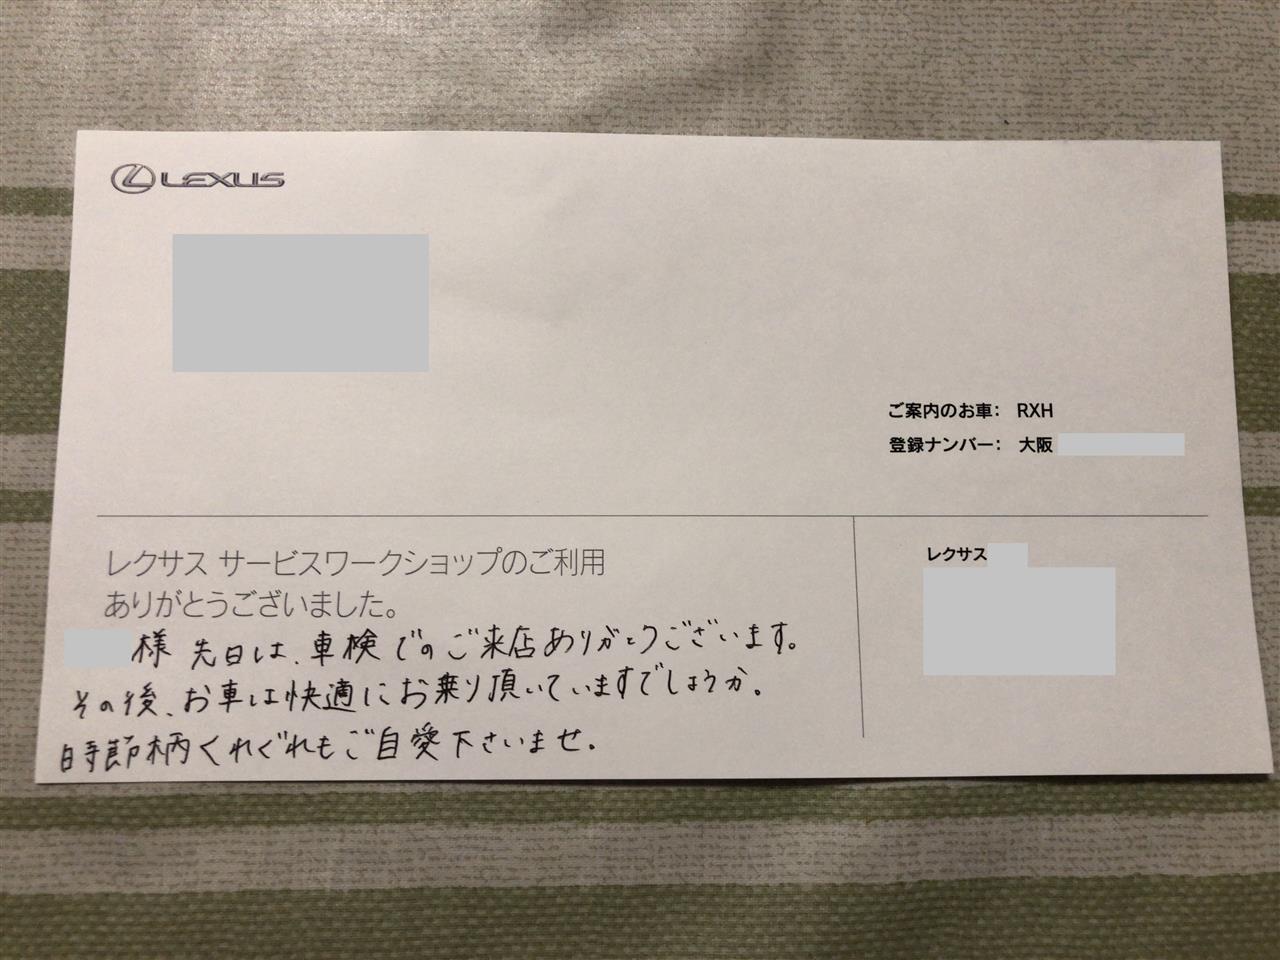 LEXUS
ご案内のお車： RXH
登録ナンバー： 大阪
レクサス サービスワークショップのご利用
ありがとうございました。
様 先日は、車検でのご来店ありがとうございます。
その後、お車は快適にお乗り頂いていますでしょうか。
時節柄くれぐれもご自愛下さいませ。
レクサス